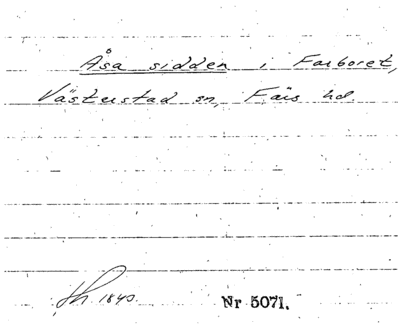 Åsa sidden i Farboret,
Västerstad sn, Färs hd.
1840. Nr 5071.